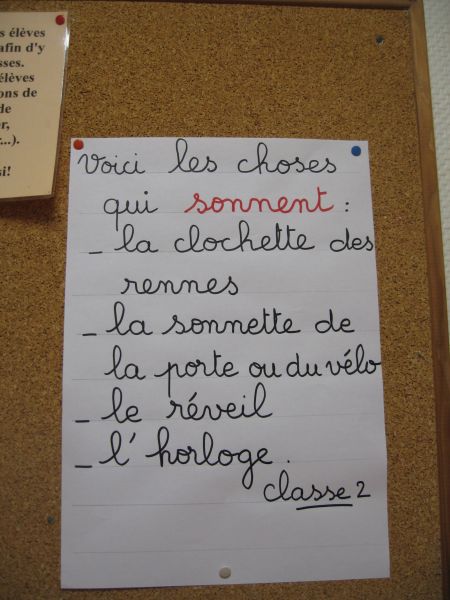 s élèves
afin d'y
sses.
élèves
ons de
de
er,
...).
si!
Voici les choses
qui sonnent :
_ la clochette des
rennes
_ la sonnette de
la porte ou du vélo
_ le réveil
_ l'horloge.
classe 2